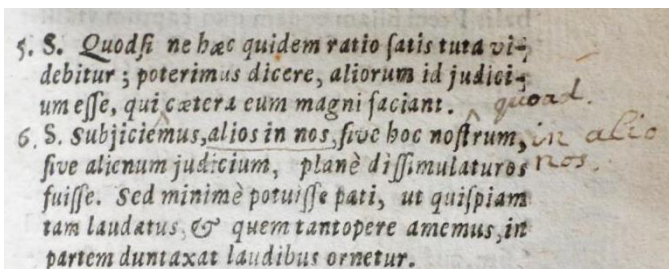 5. S. Quodſi ne hæc quidem ratio ſatis tuta vi-
debitur; poterimus dicere, aliorum id judici-
um eſſe, qui cætera eum magni faciant. quoad.
6. S. Subjiciemus, alios in nos, ſive hoc noſtrum, in alio
ſive alienum judicium, planè diſſimulaturos nos.
fuiſſe. Sed minimè potuiſſe pati, ut quiſpiam
tam laudatus, & quem tantopere amemus, in
partem duntaxat laudibus ornetur.